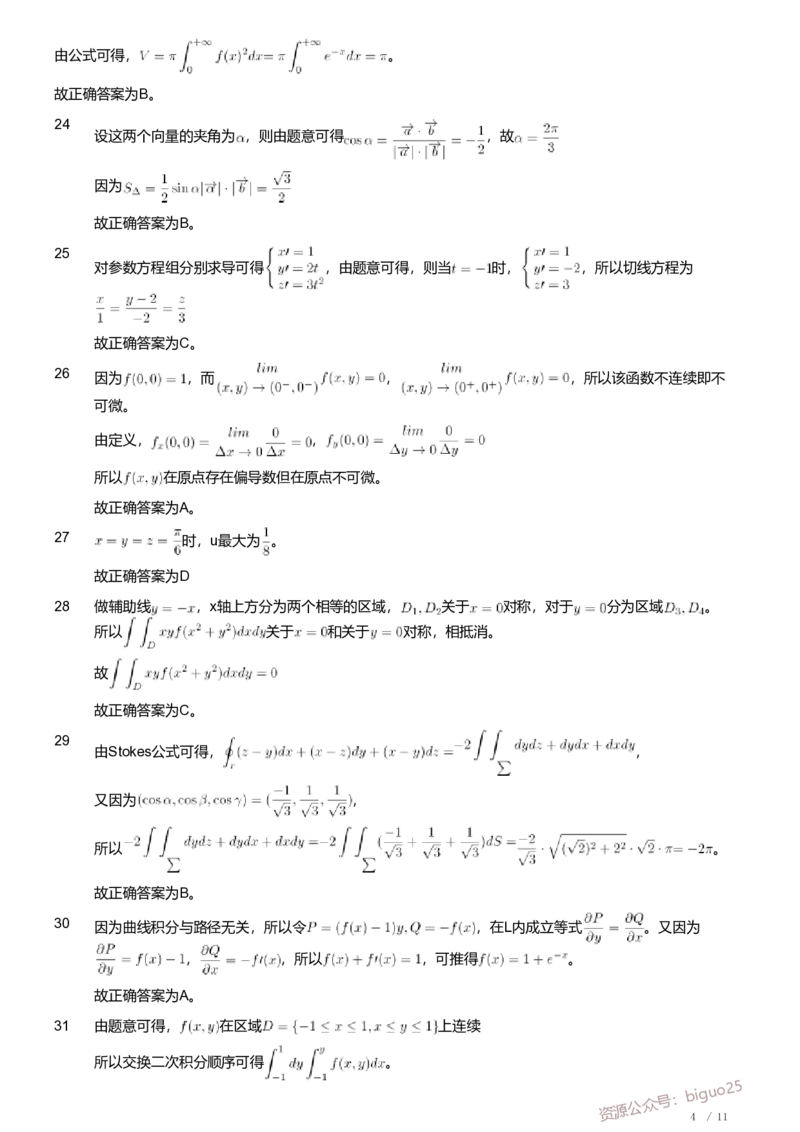 由公式可得，$V = \pi \int_0^{+\infty} f(x)^2 dx = \pi \int_0^{+\infty} e^{-x} dx = \pi$。
故正确答案为B。
24
设这两个向量的夹角为$\alpha$，则由题意可得$\cos \alpha = \frac{\overrightarrow{a} \cdot \overrightarrow{b}}{|\overrightarrow{a}| \cdot |\overrightarrow{b}|} = -\frac{1}{2}$，故$\alpha = \frac{2\pi}{3}$
因为$S_\Delta = \frac{1}{2} \sin \alpha |\overrightarrow{a}| \cdot |\overrightarrow{b}| = \frac{\sqrt{3}}{2}$
故正确答案为B。
25
对参数方程组分别求导可得$\begin{cases} x\prime = 1 \\ y\prime = 2t \\ z\prime = 3t^2 \end{cases}$，由题意可得，则当$t = -1$时，$\begin{cases} x\prime = 1 \\ y\prime = -2 \\ z\prime = 3 \end{cases}$，所以切线方程为
$\frac{x}{1} = \frac{y-2}{-2} = \frac{z}{3}$
故正确答案为C。
26 因为$f(0,0) = 1$，而$\underset{(x,y) \to (0^-,0^-)}{lim} f(x,y) = 0$，$\underset{(x,y) \to (0^+,0^+)}{lim} f(x,y) = 0$，所以该函数不连续即不
可微。
由定义，$f_x(0,0) = \underset{\Delta x \to 0}{lim} \frac{0}{\Delta x} = 0$，$f_y(0,0) = \underset{\Delta y \to 0}{lim} \frac{0}{\Delta y} = 0$
所以$f(x,y)$在原点存在偏导数但在原点不可微。
故正确答案为A。
27 $x = y = z = \frac{\pi}{6}$时，u最大为$\frac{1}{8}$。
故正确答案为D
28 做辅助线$y = -x$，x轴上方分为两个相等的区域，$D_1, D_2$关于$x = 0$对称，对于$y = 0$分为区域$D_3, D_4$。
所以$\int \int_D xyf(x^2 + y^2)dxdy$关于$x = 0$和关于$y = 0$对称，相抵消。
故$\int \int_D xyf(x^2 + y^2)dxdy = 0$
故正确答案为C。
29
由Stokes公式可得，$\oint_r (z-y)dx + (x-z)dy + (x-y)dz = -2 \int \int_\sum dydz + dydx + dxdy$，
又因为$(\cos \alpha, \cos \beta, \cos \gamma) = (\frac{-1}{\sqrt{3}}, \frac{1}{\sqrt{3}}, \frac{1}{\sqrt{3}})$，
所以$-2 \int \int_\sum dydz + dydx + dxdy = -2 \int \int_\sum (\frac{-1}{\sqrt{3}} + \frac{1}{\sqrt{3}} + \frac{1}{\sqrt{3}})dS = \frac{-2}{\sqrt{3}} \cdot \sqrt{(\sqrt{2})^2 + 2^2} \cdot \sqrt{2} \cdot \pi = -2\pi$。
故正确答案为B。
30 因为曲线积分与路径无关，所以令$P = (f(x) - 1)y, Q = -f(x)$，在L内成立等式$\frac{\partial P}{\partial y} = \frac{\partial Q}{\partial x}$。又因为
$\frac{\partial P}{\partial y} = f(x) - 1$，$\frac{\partial Q}{\partial x} = -f\prime(x)$，所以$f(x) + f\prime(x) = 1$，可推得$f(x) = 1 + e^{-x}$。
故正确答案为A。
31 由题意可得，$f(x,y)$在区域$D = \{-1 \leq x \leq 1, x \leq y \leq 1\}$上连续
所以交换二次积分顺序可得$\int_{-1}^{1} dy \int_{-1}^{y} f(x,y)dx$。
资源公众号：biguo25
4 / 11